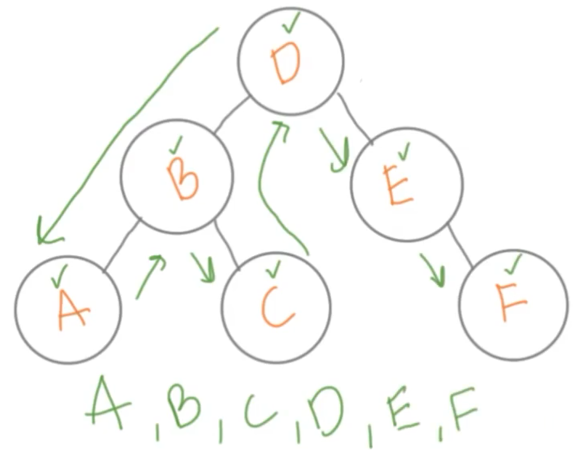 D
B
E
A
C
F
A, B, C, D, E, F